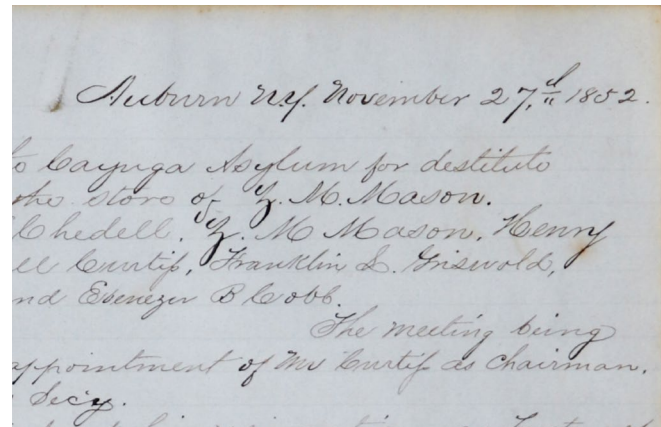 Auburn N.Y. November 27,th 1852.
to Cayuga Asylum for destitute
the store of Z. M. Mason.
Chedell, Z. M Mason, Henry
ell Curtiss, Franklin L. Griswold,
nd Ebenezer B Cobb.
The meeting being
appointment of Mr Curtiss as Chairman.
Secy.